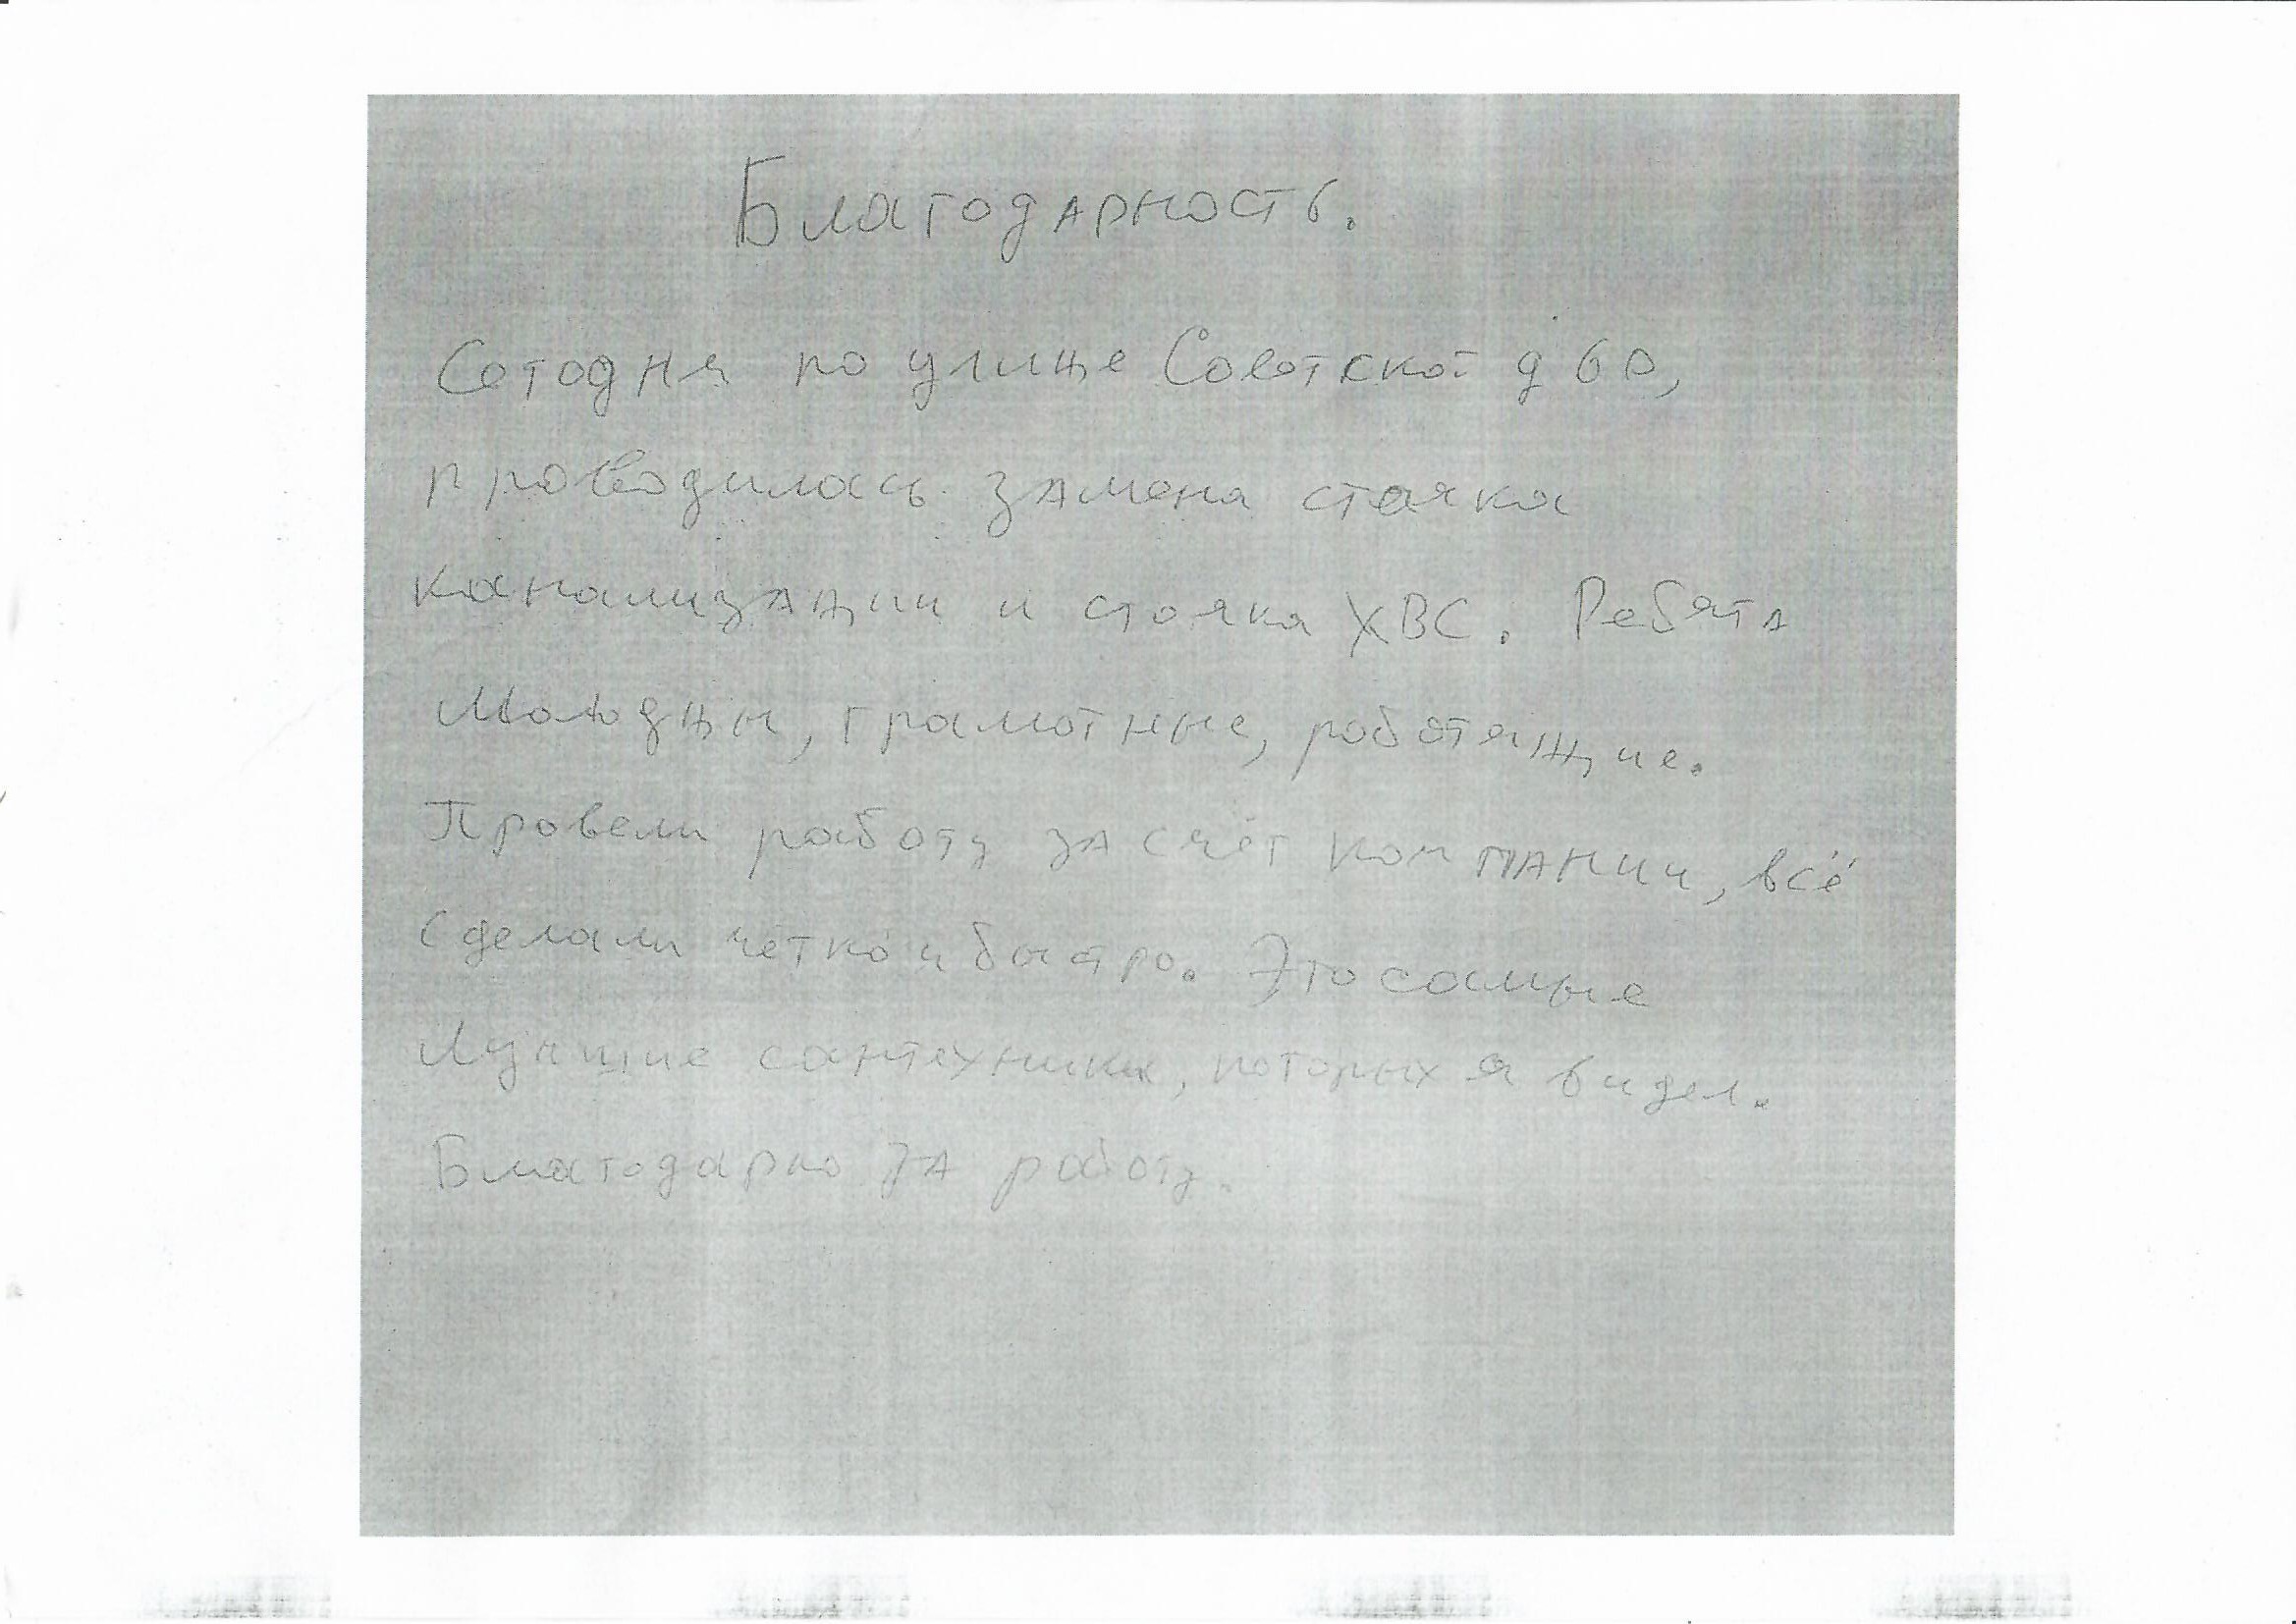 Благодарность.
Сегодня по улице Советской д 60,
проводилась замена стояка
канализации и стояка ХВС. Ребята
молодцы, грамотные, работящие.
Провели работу за счёт компании, всё
сделали чётко и быстро. Это самые
лучшие сантехники, которых я видел.
Благодарю за работу.